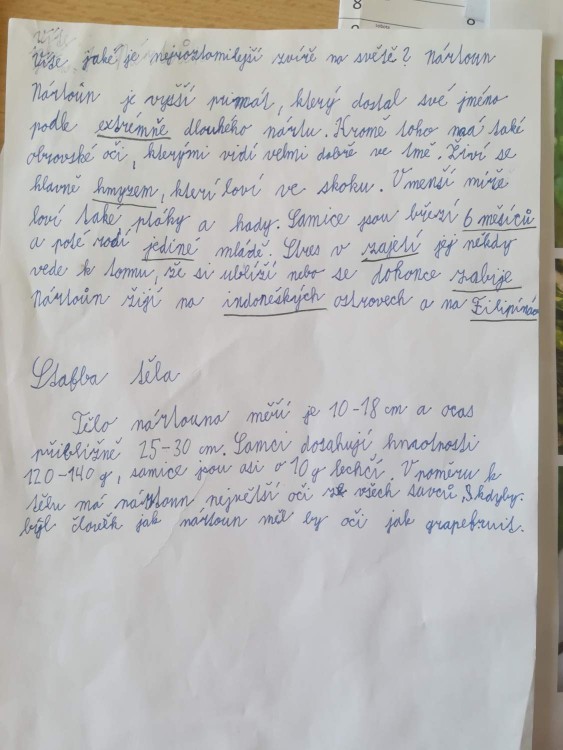 8
Víte jaké je nejroztomilejší zvíře na světě? Nártoun
Nártoun je vyšší primát, který dostal své jméno
podle extrémně dlouhého nártu. Kromě toho má také
obrovské oči, kterými vidí velmi dobře ve tmě. Živí se
hlavně hmyzem, kterí loví ve skoku. V menší míře
loví také ptáky a hady. Samice jsou březí 6 měsíců
a poté rodí jediné mládě. Stres v zajetí jej někdy
vede k tomu, že si ublíží nebo se dokonce zabije
Nártoun žijí na indonéských ostrovech a na Filipínác
Stafba těla
Tělo nártouna měří je 10-18 cm a ocas
přibližně 25-30 cm. Samci dosahují hmotnosti
120-140 g, samice jsou asi o 10 g lechčí. V poměru k
tělu má nártoun největší oči ze všech savců. Skdyby
býl člověk jak nártoun měl by oči jak grapefruit.